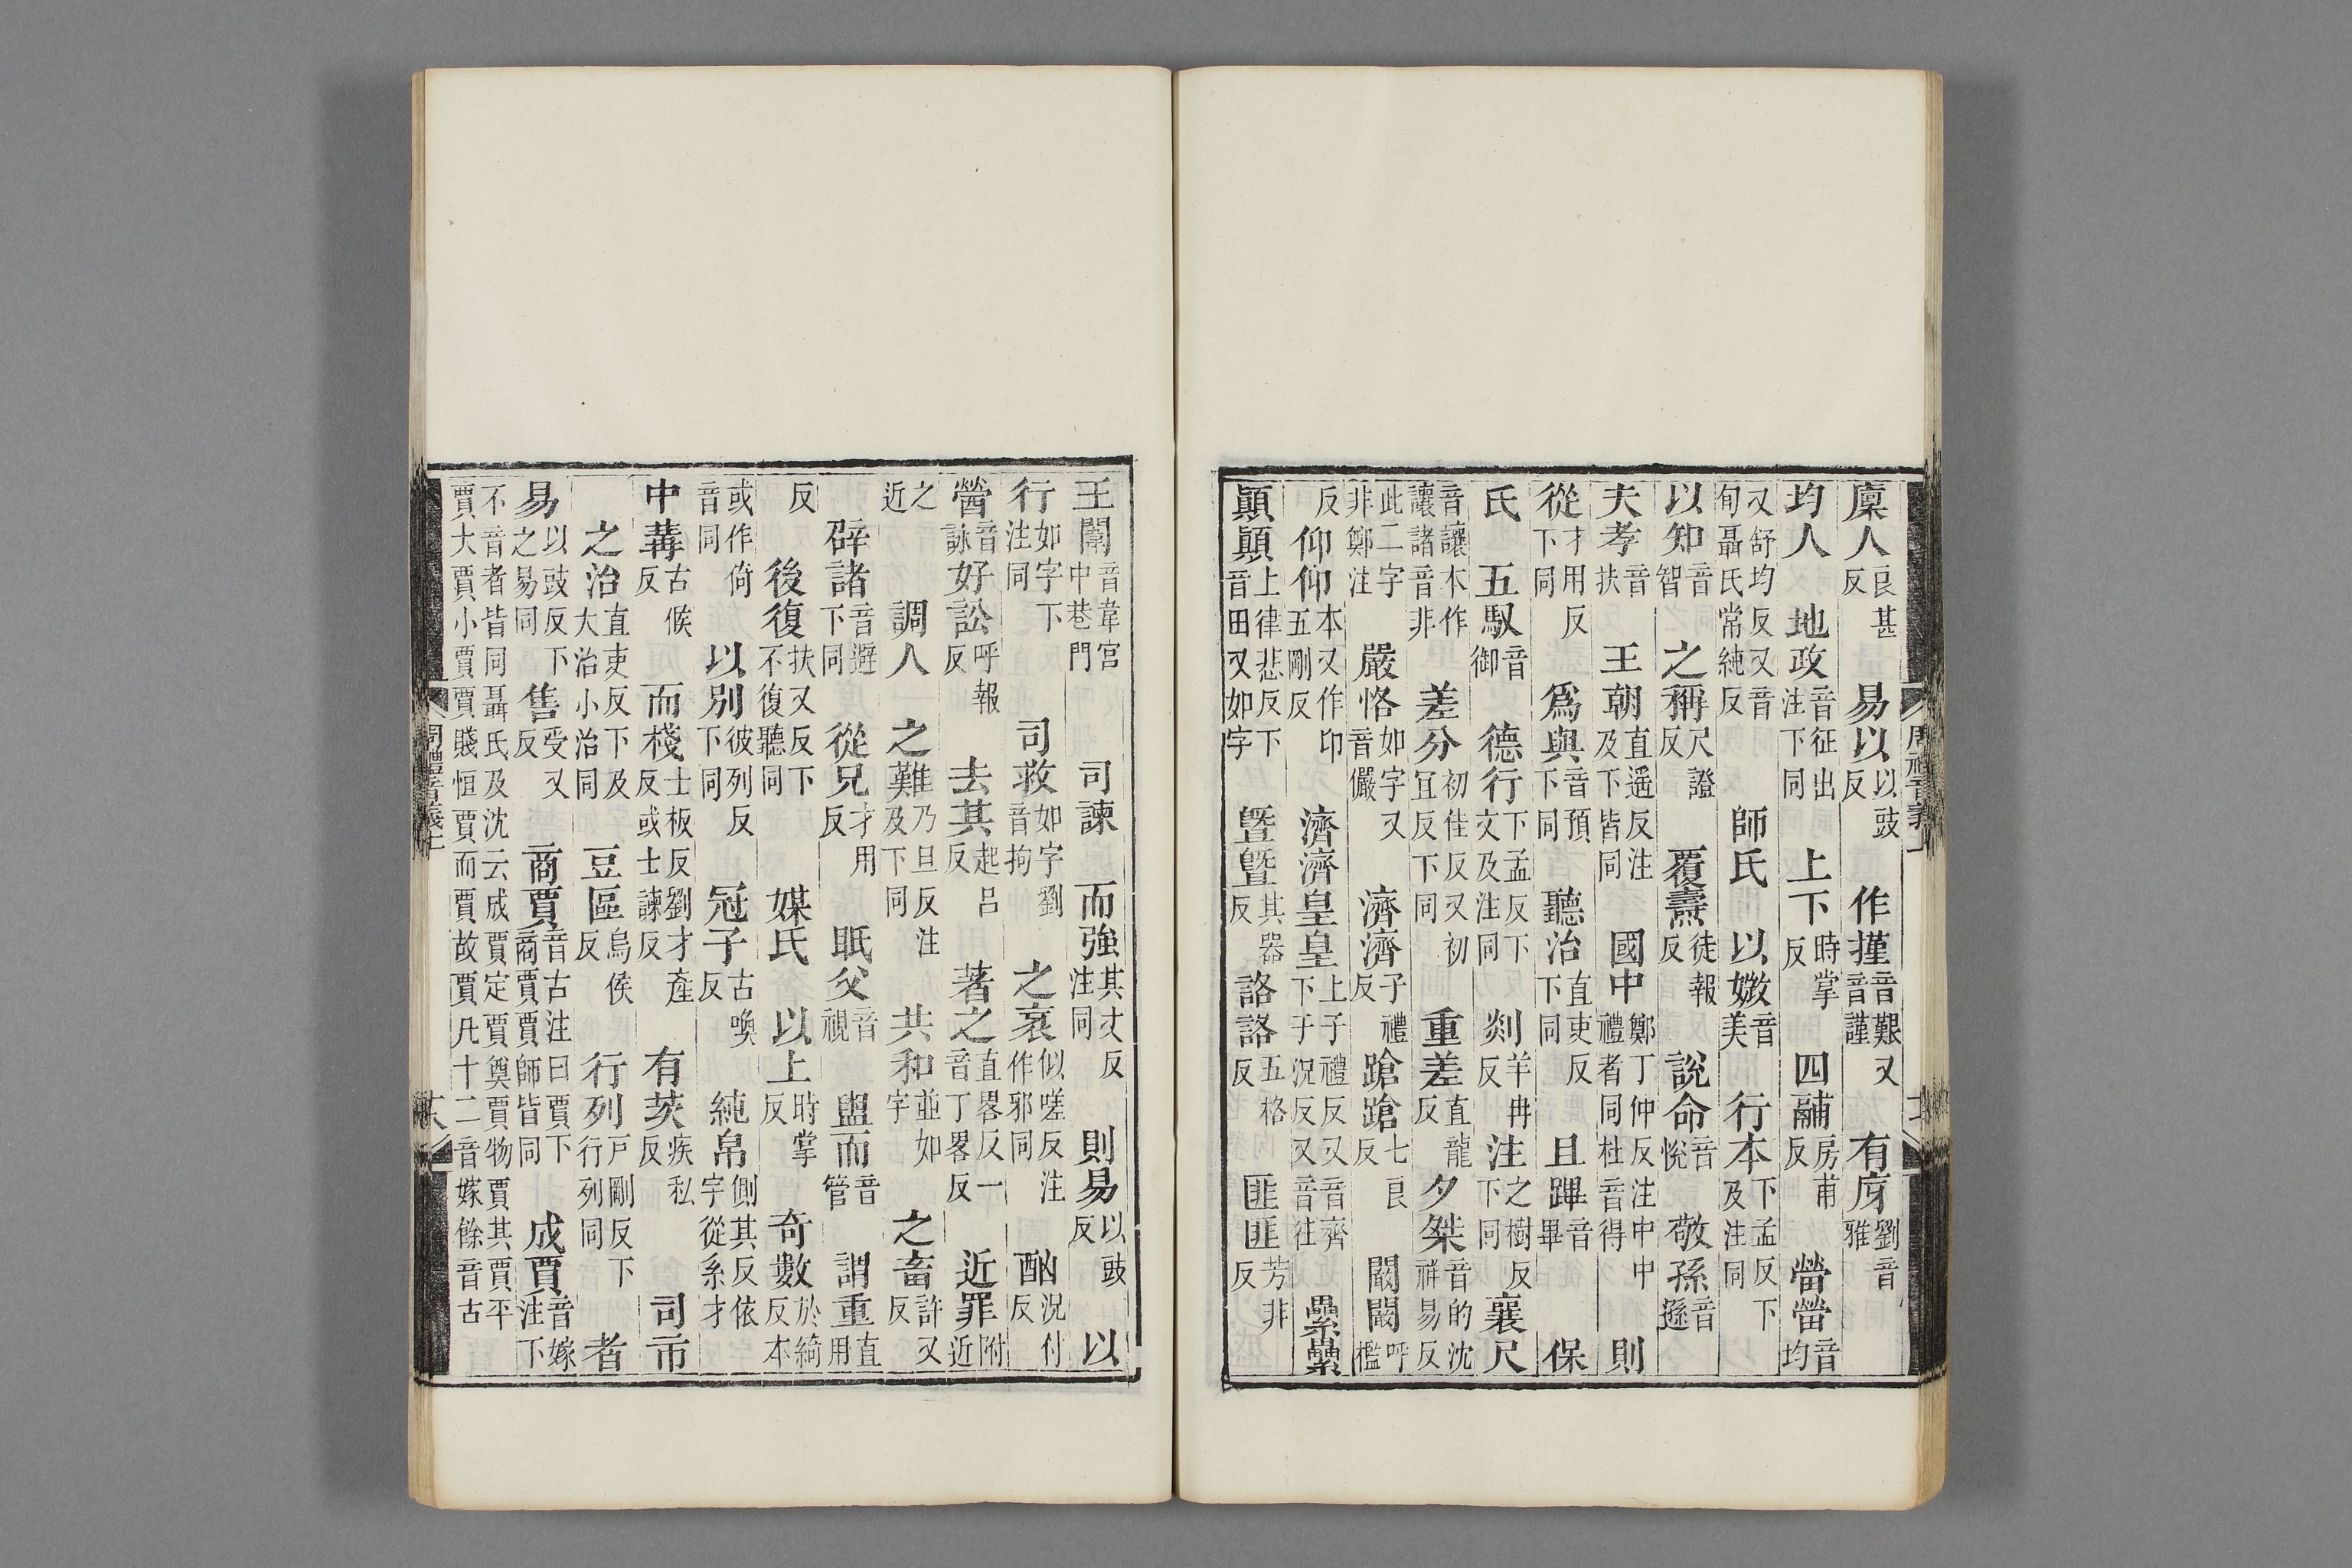 廩人良甚反　易以以豉反　作㨷音艱又音謹　有㡯劉音雅
均人　地政音征出注下同　上下時掌反　四鬴房甫反　㽦㽦音均
又舒均反又音旬聶氏常純反　師氏　以媺音美　行本下孟反下及注同
以知音智　之稱尺證反　覆燾徒報反　說命音悅　敬孫音遜
夫孝音扶　王朝直遥反注及下皆同　國中鄭丁仲反注中中禮者同杜音得　則
從才用反下同　爲與音預下同　聽治直吏反下同　且蹕音畢　保
氏　五馭音御　德行下孟反下文及注同　剡羊冉反　注之樹反下同　襄尺
音讓本作讓諸音非　差分初佳反又初冝反下同　重差直龍反　夕桀音的沈祥易反
此二字非鄭注　嚴恪如字又音儼　濟濟子禮反　蹌蹌七良反　闞闞呼檻
反　仰仰本又作卬五剛反　濟濟皇皇上子禮反又音齊下于況反又音往　纍纍
顚顚上律悲反下音田又如字　曁曁其器反　詻詻五格反　匪匪芳非反
王闈音韋宮中巷門　司諫　而強其丈反注同　則易以豉反　以
行如字下注同　司救如字劉音拘　之衺似嗟反注作邪同　酗況付反
醟音詠好訟呼報反　去其起呂反　著之直畧反一音丁畧反　近罪附近
之近　調人　之難乃旦反注及下同　共和並如字　之畜許又反
辟諸音避下同　從兄才用反　眂父音視　盥而音管　謂重直用
反　後復扶又反下不復聽同　媒氏　以上時掌反　奇數於綺反本
或作倚音同　以別彼列反下同　冠子古喚反　純帛側其反依字從糸才
中冓古候反　而棧士板反劉才產反或士諫反　有茨疾私反　司市
之治直吏反下及大治小治同　豆區烏侯反　行列戸剛反下行列同　者
易以豉反下之易同　售受又反　商賈音古注曰賈下商賈賈師皆同　成賈音嫁注下
不音者皆同聶氏及沈云成賈定賈奠賈物賈其賈平賈大賈小賈賈賤恒賈而賈故賈凡十二音嫁餘音古